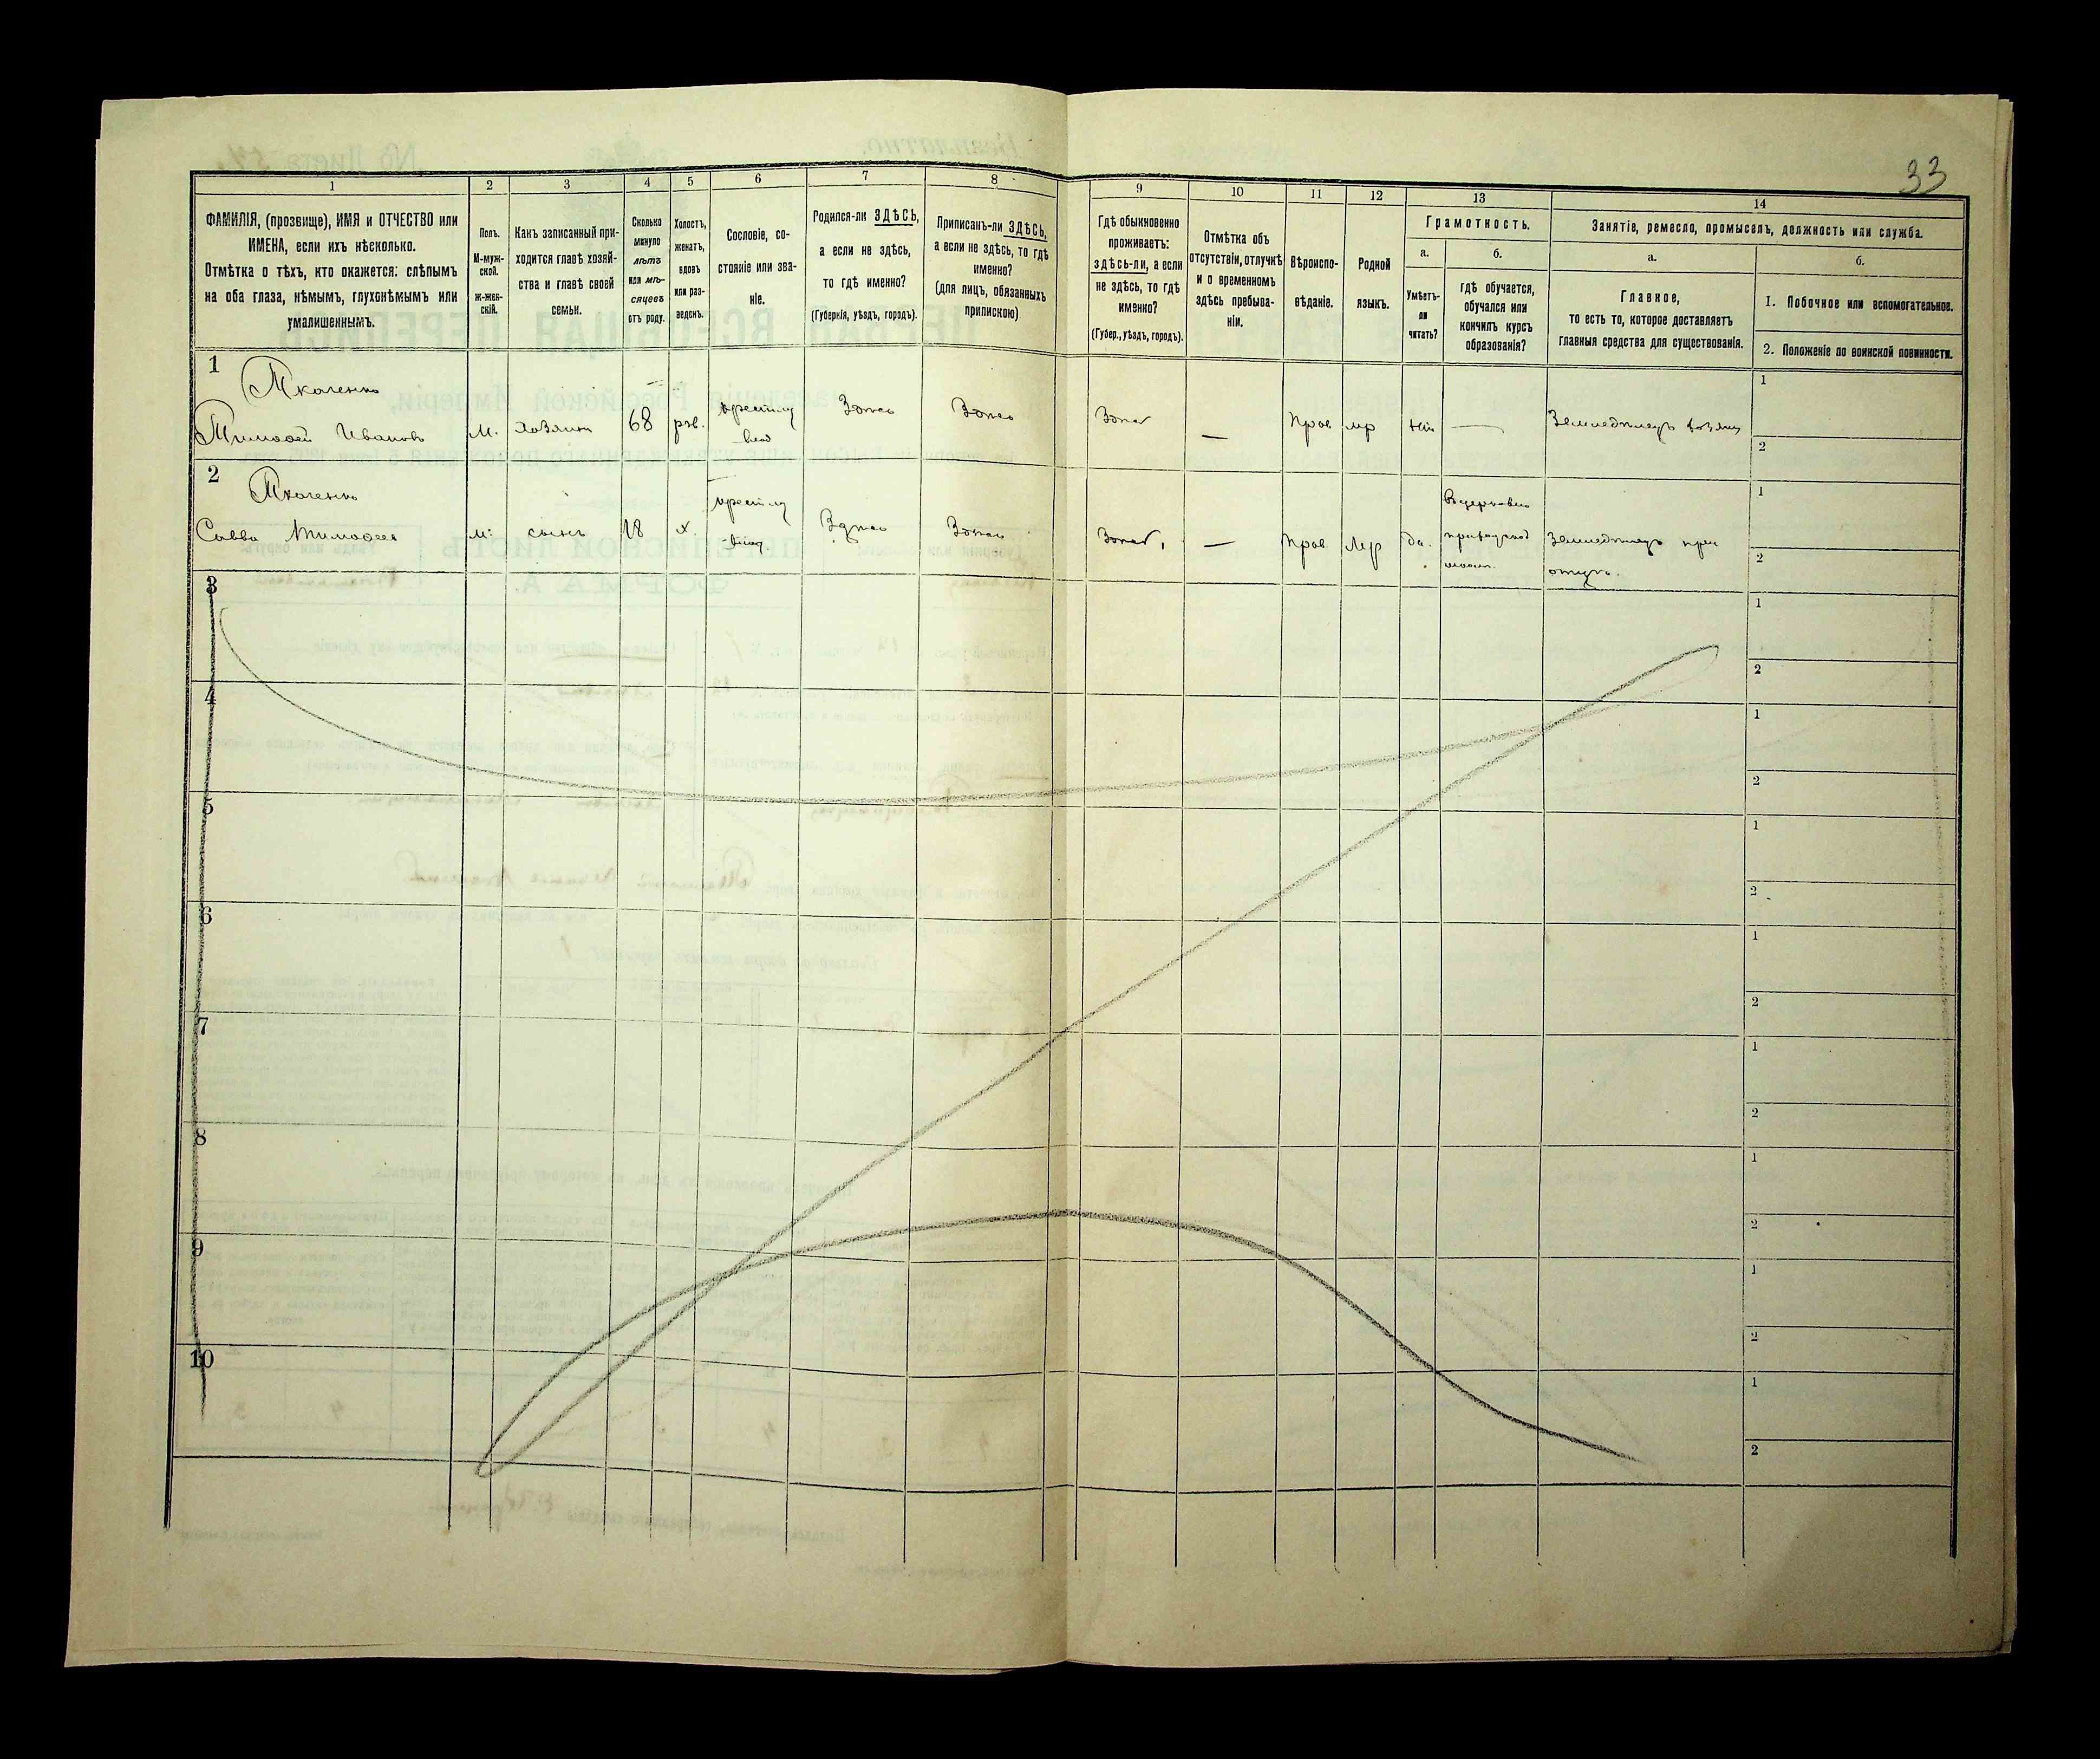 33
1
2
3
4
5
6
7
8
9
10
11
12
13
14
ФАМИЛІЯ, (прозвище), ИМЯ и ОТЧЕСТВО или
ИМЕНА, если ихъ нѣсколько.
Отмѣтка о тѣхъ, кто окажется: слѣпымъ
на оба глаза, нѣмымъ, глухонѣмымъ или
умалишеннымъ.
Полъ.
М-муж-
ской.
ж-жен-
скій.
Какъ записанный при-
ходится главѣ хозяй-
ства и главѣ своей
семьи.
Сколько
минуло
лѣтъ
или мѣ-
сяцевъ
отъ роду.
Холостъ,
женатъ,
вдовъ
или раз-
веденъ.
Сословіе, со-
стояніе или зва-
ніе.
Родился-ли ЗДѢСЬ,
а если не здѣсь,
то гдѣ именно?
(Губернія, уѣздъ, городъ).
Приписанъ-ли ЗДѢСЬ,
а если не здѣсь, то гдѣ
именно?
(для лицъ, обязанныхъ
припискою)
Гдѣ обыкновенно
проживаетъ:
здѣсь-ли, а если
не здѣсь, то гдѣ
именно?
(Губер., уѣздъ, городъ).
Отмѣтка объ
отсутствіи, отлучкѣ
и о временномъ
здѣсь пребыва-
ніи.
Вѣроиспо-
вѣданіе.
Родной
языкъ.
Грамотность.
а.
Умѣетъ-
ли
читать?
б.
гдѣ обучается,
обучался или
кончилъ курсъ
образованія?
Занятіе, ремесло, промыселъ, должность или служба.
а.
Главное,
то есть то, которое доставляетъ
главныя средства для существованія.
б.
1. Побочное или вспомогательное.
2. Положеніе по воинской повинности.
1
Ткаченко
Тимофей Ивановъ
М.
хозяинъ
68
Здѣсь
Здѣсь
Здѣсь
—
Прав
мр
нѣтъ
—
1
2
2
Ткаченко
Савва Тимофеев
м.
сынъ
18
х.
Здѣсь
Здѣсь
Здѣсь
—
Прав
Мр
да.
1
2
3
1
2
4
1
2
5
1
2
6
1
2
7
1
2
8
1
2
9
1
2
10
1
2